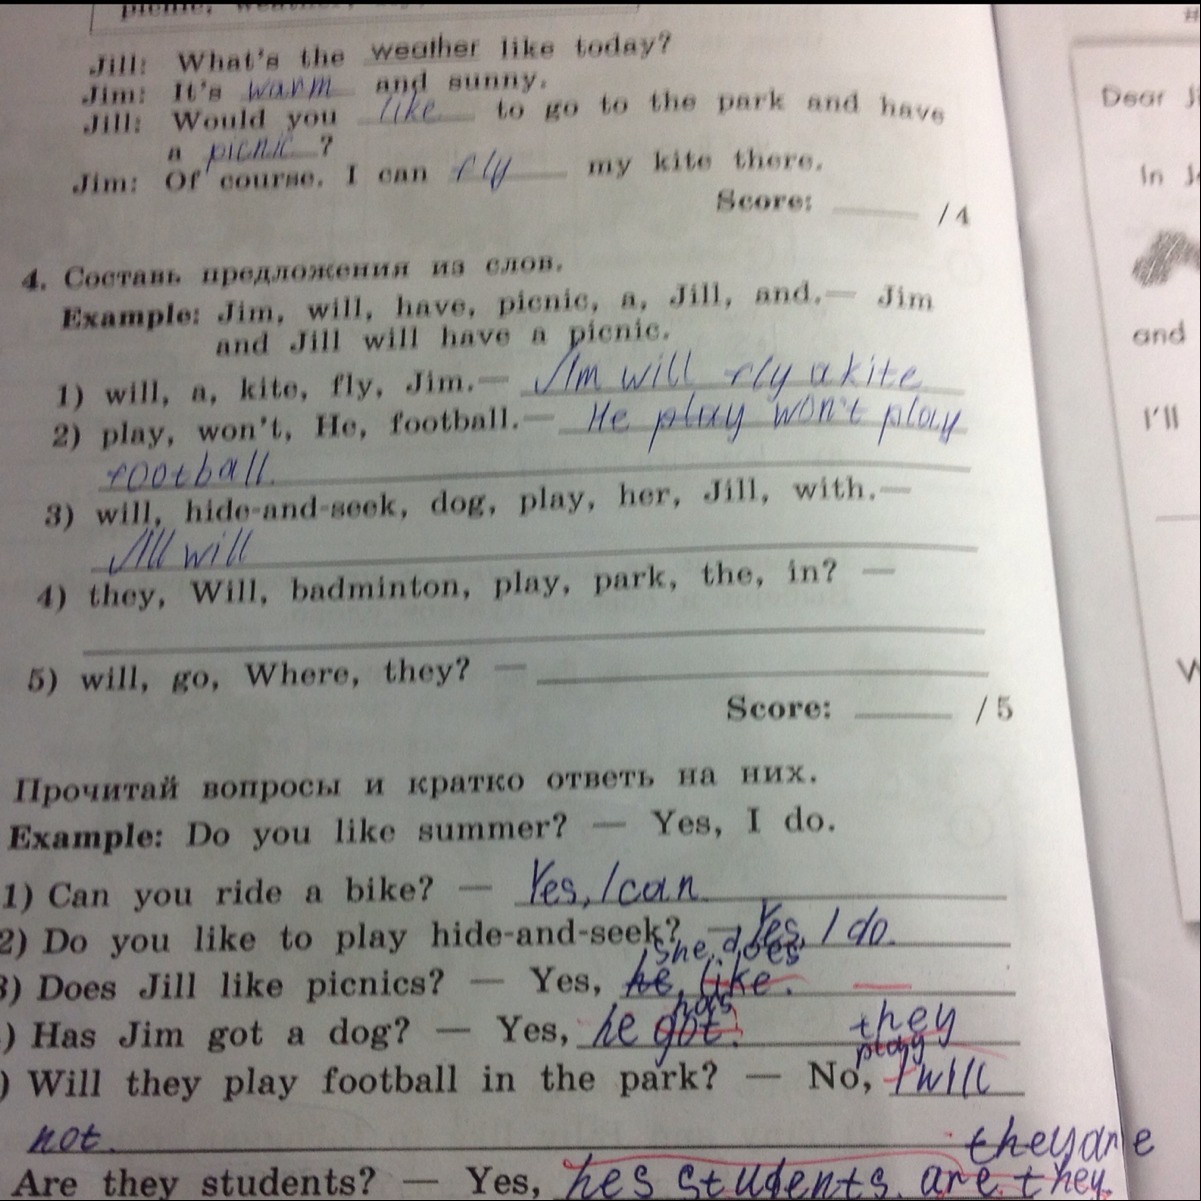 picnic,
Jill: What's the weather like today?
Jim: It's warm and sunny.
Jill: Would you like to go to the park and have
a picnic ?
Jim: Of course. I can fly my kite there.
Score: ____ /4
4. Составь предложения из слов.
Example: Jim, will, have, picnic, a, Jill, and.— Jim
and Jill will have a picnic.
1) will, a, kite, fly, Jim.— Jim will fly a kite
2) play, won't, He, football.— He play won't play
football.
3) will, hide-and-seek, dog, play, her, Jill, with.—
Jill will
4) they, Will, badminton, play, park, the, in? —
5) will, go, Where, they? —
Score: ____ /5
Прочитай вопросы и кратко ответь на них.
Example: Do you like summer? — Yes, I do.
1) Can you ride a bike? — Yes, I can.
2) Do you like to play hide-and-seek? — Yes, I do.
she does
3) Does Jill like picnics? — Yes, he, like.
has
) Has Jim got a dog? — Yes, he got. they
) Will they play football in the park? — No, I will
not.
they are
Are they students? — Yes, hes students are they.
Dear Ji
in J
and
I'll